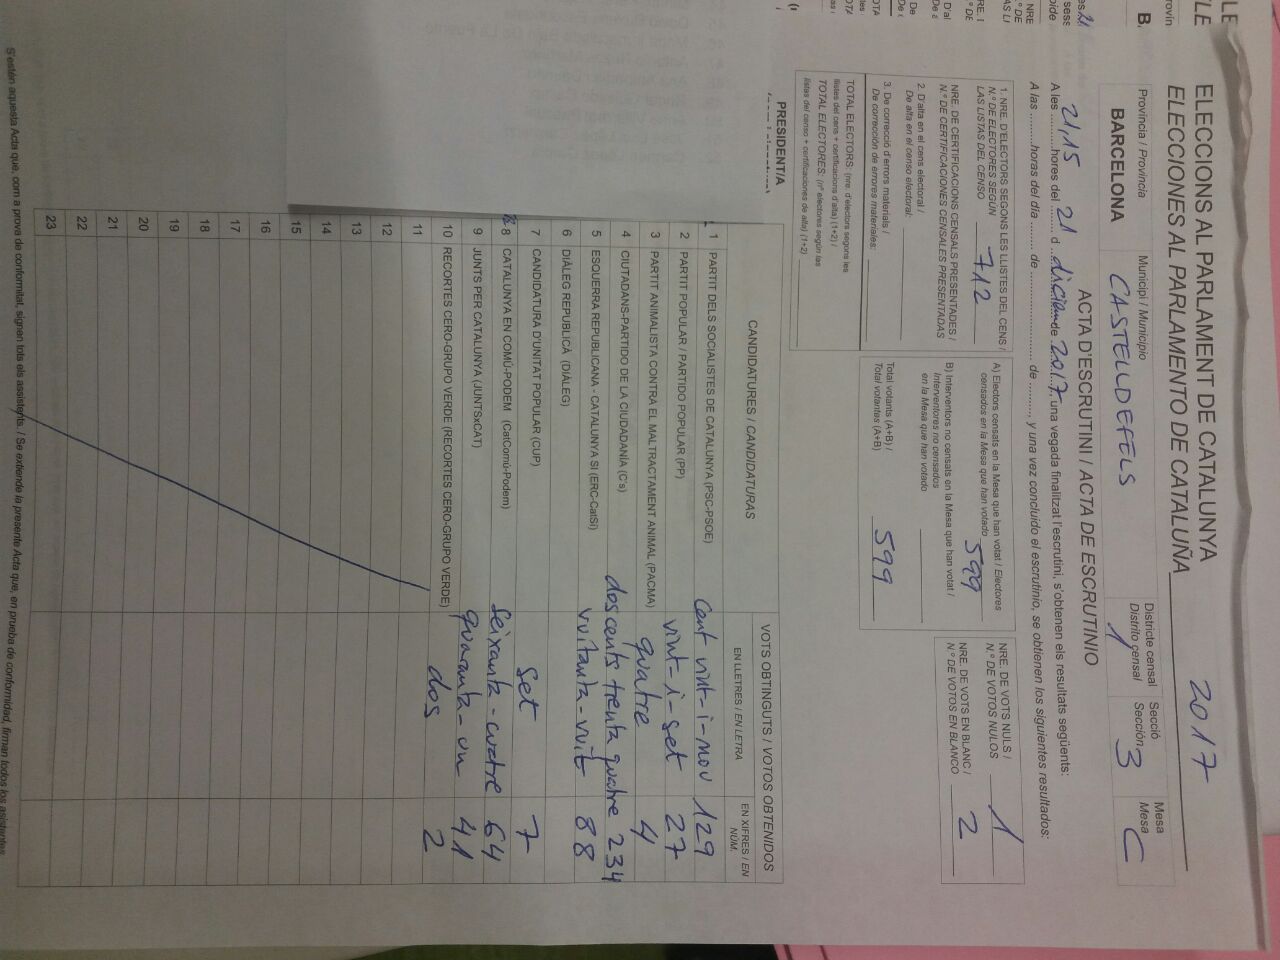 ELECCIONS AL PARLAMENT DE CATALUNYA
ELECCIONES AL PARLAMENTO DE CATALUÑA 2017
Província / Provincia
BARCELONA
Municipi / Municipio
CASTELLDEFELS
Districte censal
Distrito censal 1
Secció
Sección 3
Mesa
Mesa C
ACTA D'ESCRUTINI / ACTA DE ESCRUTINIO
A les 21,15 hores del 21 d de 2017, una vegada finalitzat l'escrutini, s'obtenen els resultats següents:
A las horas del día de de , y una vez concluido el escrutinio, se obtienen los siguientes resultados:
1. NRE. D'ELECTORS SEGONS LES LLISTES DEL CENS /
N.º DE ELECTORES SEGÚN
LAS LISTAS DEL CENSO 712
NRE. DE CERTIFICACIONS CENSALS PRESENTADES /
N.º DE CERTIFICACIONES CENSALES PRESENTADAS
2. D'alta en el cens electoral /
De alta en el censo electoral:
3. De correcció d'errors materials /
De corrección de errores materiales:
TOTAL ELECTORS: (nre. d'electors segons les
llistes del cens + certificacions d'alta) (1+2) /
TOTAL ELECTORES: (nº electores según las
listas del censo + certificaciones de alta) (1+2)
A) Electors censats en la Mesa que han votat / Electores
censados en la Mesa que han votado 599
B) Interventors no censats en la Mesa que han votat /
Interventores no censados
en la Mesa que han votado
Total votants (A+B) /
Total votantes (A+B) 599
NRE. DE VOTS NULS /
N.º DE VOTOS NULOS 1
NRE. DE VOTS EN BLANC /
N.º DE VOTOS EN BLANCO 2
PRESIDENT/A
CANDIDATURES / CANDIDATURAS
VOTS OBTINGUTS / VOTOS OBTENIDOS
EN LLETRES / EN LETRA
EN XIFRES / EN NÚM.
1 PARTIT DELS SOCIALISTES DE CATALUNYA (PSC-PSOE) Cent vint-i-nou 129
2 PARTIT POPULAR / PARTIDO POPULAR (PP) vint-i-set 27
3 PARTIT ANIMALISTA CONTRA EL MALTRACTAMENT ANIMAL (PACMA) quatre 4
4 CIUTADANS-PARTIDO DE LA CIUDADANÍA (C's) doscents trenta quatre 234
5 ESQUERRA REPUBLICANA - CATALUNYA SÍ (ERC-CatSí) vuitanta-vuit 88
6 DIÀLEG REPUBLICÀ (DIÀLEG)
7 CANDIDATURA D'UNITAT POPULAR (CUP) set 7
8 CATALUNYA EN COMÚ-PODEM (CatComú-Podem) Seixanta-cuatre 64
9 JUNTS PER CATALUNYA (JUNTSxCAT) quaranta-un 41
10 RECORTES CERO-GRUPO VERDE (RECORTES CERO-GRUPO VERDE) dos 2
11
12
13
14
15
16
17
18
19
20
21
22
23
S'estén aquesta Acta que, com a prova de conformitat, signen tots els assistents. / Se extiende la presente Acta que, en prueba de conformidad, firman todos los asistentes